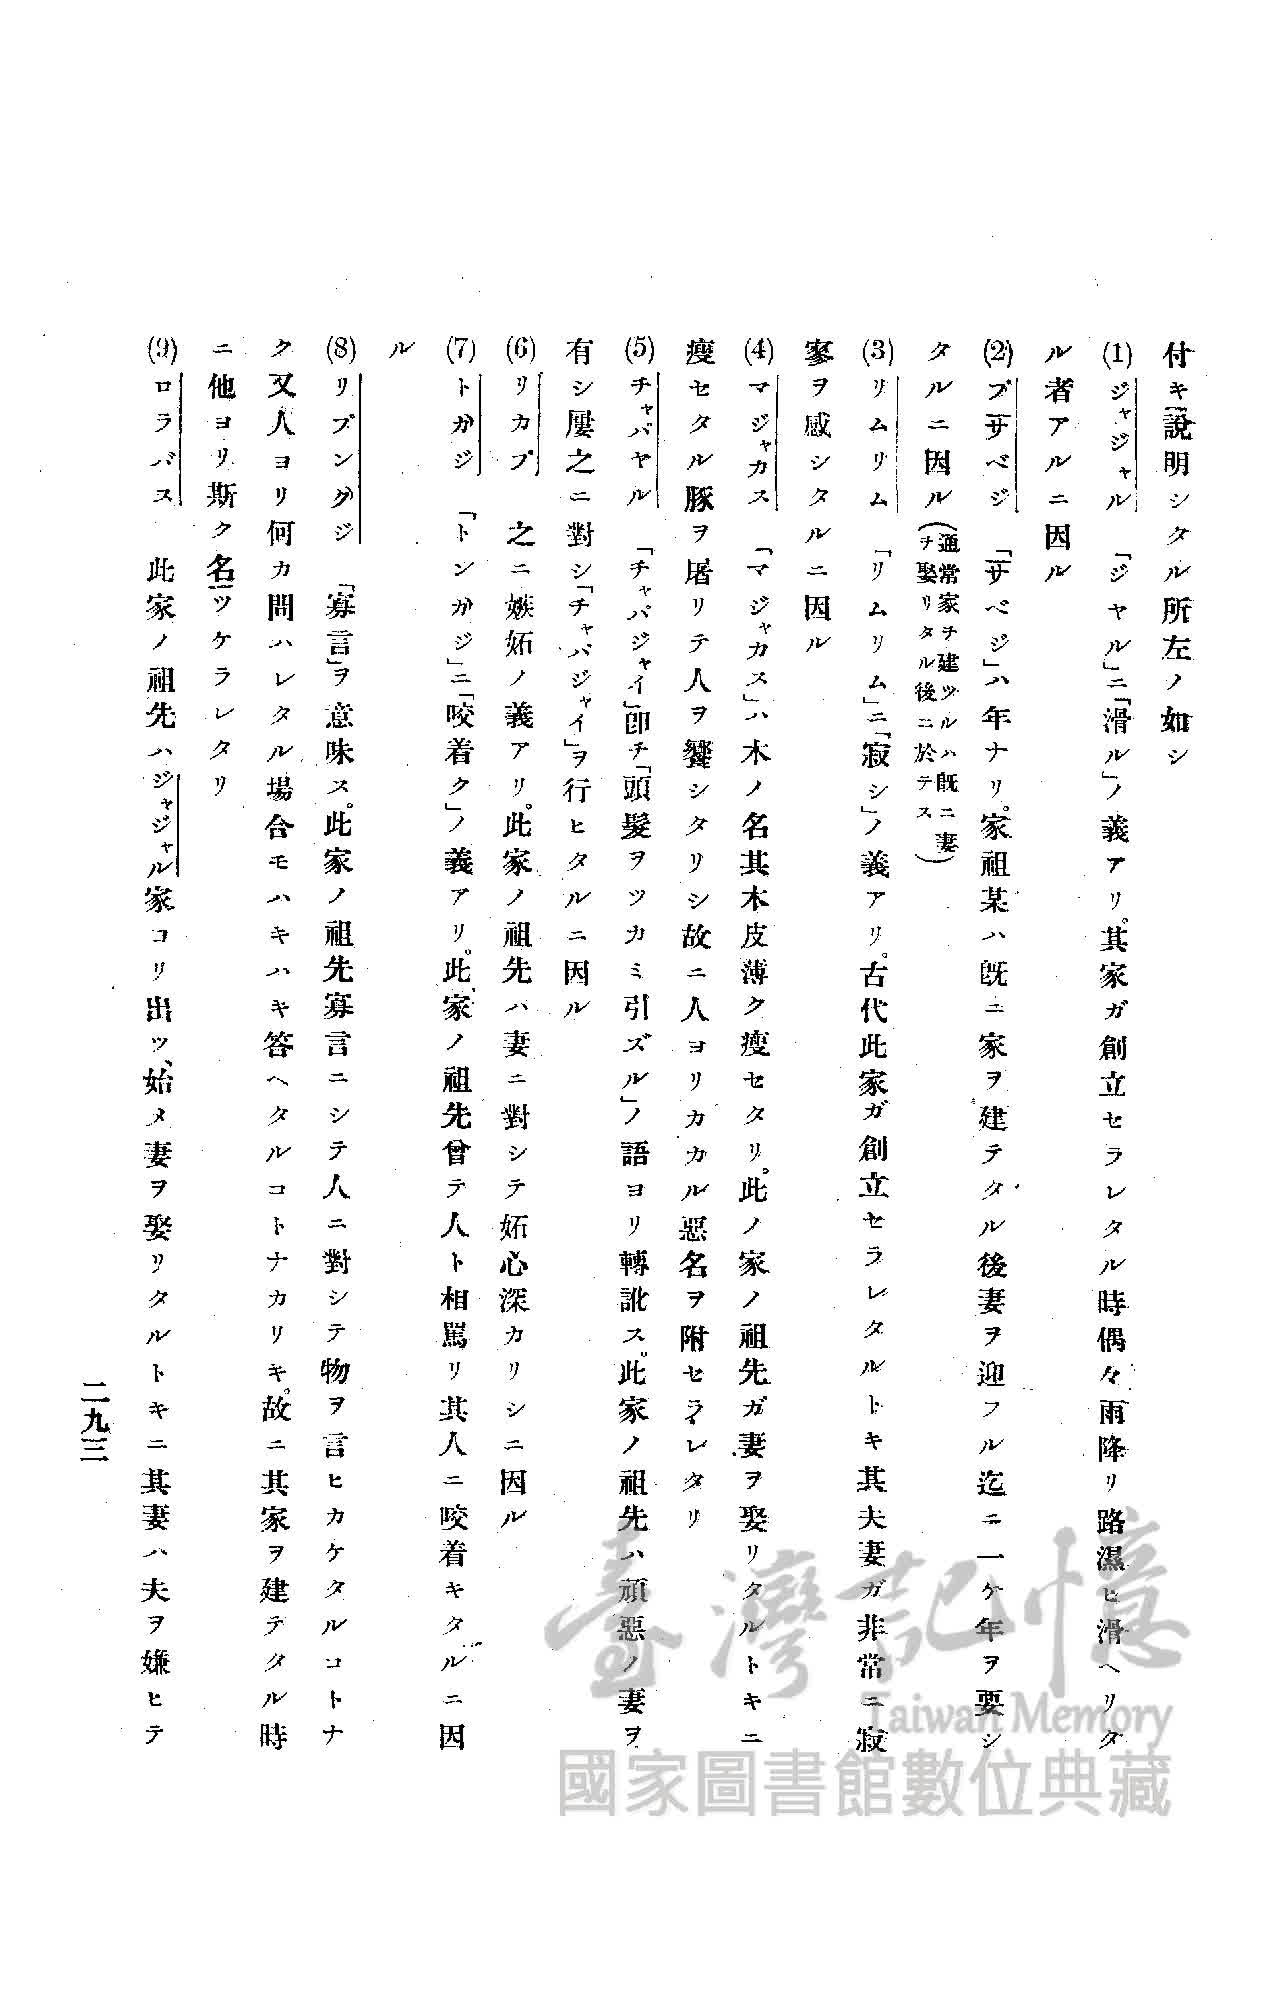 付キ説明シタル所左ノ如シ
(1) ジャジャル 「ジヤル」ニ「滑ル」ノ義アリ。其家ガ創立セラレタル時偶々雨降リ路濕ヒ滑ヘリタ
ル者アルニ因ル
(2) ブサベジ 「サベジ」ハ年ナリ。家祖某ハ既ニ家ヲ建テタル後妻ヲ迎フル迄ニ一ケ年ヲ要シ
タルニ因ル(通常家ヲ建ツルハ既ニ妻ヲ娶リタル後ニ於テス)
(3) リムリム 「リムリム」ニ「寂シ」ノ義アリ。古代此家ガ創立セラレタルトキ其夫妻ガ非常ニ寂
寥ヲ感シタルニ因ル
(4) マジャカス 「マジャカス」ハ木ノ名其木皮薄ク瘦セタリ。此ノ家ノ祖先ガ妻ヲ娶リタルトキニ
瘦セタル豚ヲ屠リテ人ヲ饗シタリシ故ニ人ヨリカカル惡名ヲ附セラレタリ
(5) チャバヤル 「チャバジャイ」卽チ「頭髮ヲツカミ引ズル」ノ語ヨリ轉訛ス。此家ノ祖先ハ頑惡ノ妻ヲ
有シ屢之ニ對シ「チャバジャイ」ヲ行ヒタルニ因ル
(6) リカブ 之ニ嫉妬ノ義アリ。此家ノ祖先ハ妻ニ對シテ妬心深カリシニ因ル
(7) トガジ 「トンガジ」ニ「咬着ク」ノ義アリ。此家ノ祖先曾テ人ト相罵リ其人ニ咬着キタルニ因
ル
(8) リブンガジ 「寡言」ヲ意味ス。此家ノ祖先寡言ニシテ人ニ對シテ物ヲ言ヒカケタルコトナ
ク又人ヨリ何カ問ハレタル場合モハキハキ答ヘタルコトナカリキ。故ニ其家ヲ建テタル時
ニ他ヨリ斯ク名ツケラレタリ
(9) ロラバス 此家ノ祖先ハジャジャル家コリ出ツ、始メ妻ヲ娶リタルトキニ其妻ハ夫ヲ嫌ヒテ
二九三
臺灣記憶
Taiwan Memory
國家圖書館數位典藏